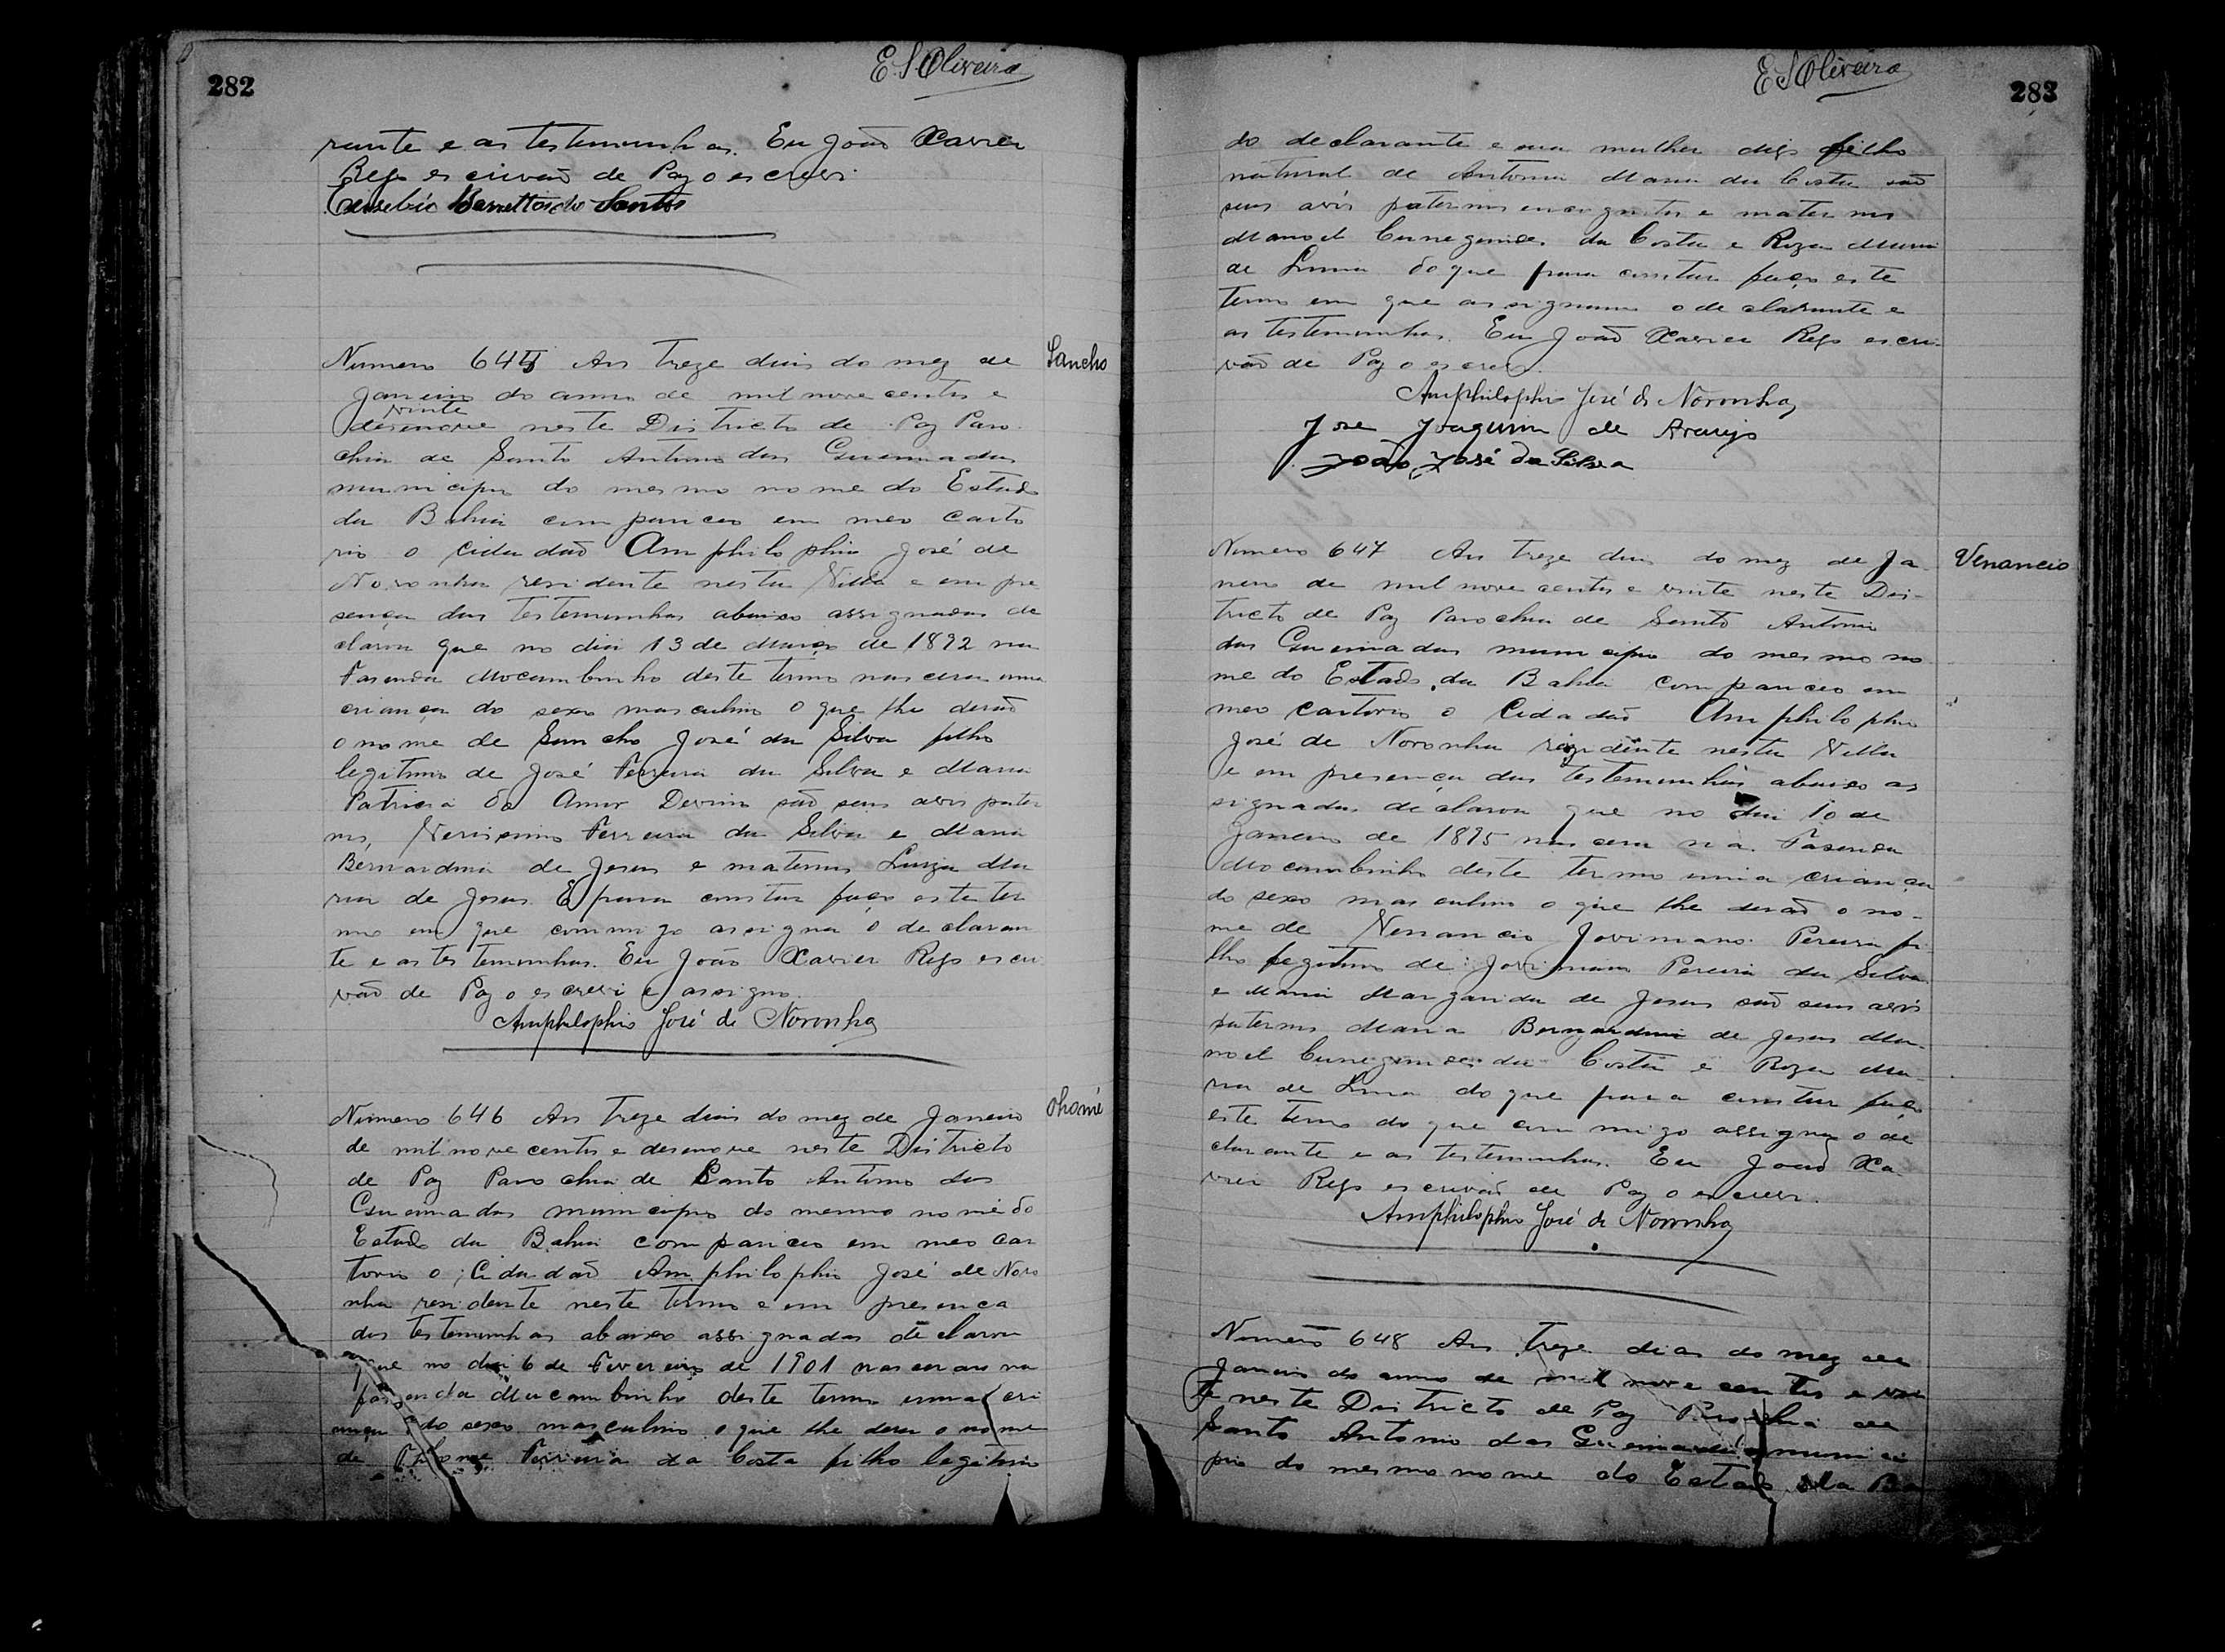 282
E. S. Oliveira
rante e as testemunhas. Eu João Xavier
Rego escrivão de Paz o escrevi
Eusebio Barretto dos Santos
Numero 645 Aos treze dias do mez de
Sancho
Janeiro do anno de mil nove centos e
vinte
desenove neste Districto de Paz Paro
chia de Santo Antonio das Queimadas
municipio do mesmo nome do Estado
da Bahia compareceo em meo carto
rio o Cidadão Amphilophio José de
Noronha residente nesta Villa e em pre
sença das testemunhas abaixo assignadas de
clarou que no dia 13 de Março de 1892 na
Fasenda Mocambinho deste termo nascera uma
criança do sexo masculino o que lhe derão
o nome de Sancho José da Silva filho
legitimo de José Ferreira da Silva e Maria
Patricia do Amor Devino são seus avós pater
nos, Verissimo Ferreira da Silva e Maria
Bernardina de Jesus e maternos Luiza Ma
ria de Jesus. E para constar faço este ter
mo em que commigo assigna o declaran
te e as testemunhas. Eu João Xavier Rego escri
vão de Paz o escrevi e assigno.
Amphilophio José de Noronha
Numero 646 Aos treze dias do mez de Janeiro
Thomé
de mil nove centos e desenove neste Districto
de Paz Parochia de Santo Antonio das
Queimadas municipio do mesmo nome do
Estado da Bahia compareceo em meo car
torio o Cidadão Amphilophio José de Noro
nha residente neste termo e em presenca
das testemunhas abaixo assignadas declarou
que no dia 6 de Fevereiro de 1901 nascera na
fasenda Mucambinho deste termo uma cri
ança do sexo masculino o que lhe dera o nome
de Thome Ferreira da Costa filho legitimo
283
E S Oliveira
do declarante e sua mulher digo filho
natural de Antonia Maria da Costa são
seus avós paternos incognitos e maternos
Manoel Cunegundes da Costa e Roza Maria
de Lima do que para constar faço este
termo em que assignam o declarante e
as testemunhas. Eu João Xavier Rego escri
vão de Paz o escrevi.
Amphilophio José de Noronha
Jose Joaquim de Araujo
João José da Silva
Numero 647 Aos treze dias do mez de Ja
Venancio
neiro de mil nove centos e vinte neste Dis-
tricto de Paz Parochia de Santo Antonio
das Queimadas municipio do mesmo no
me do Estado da Bahia compareceo em
meo cartorio o Cidadão Amphilophio
José de Noronha residente nesta Villa
e em presença das testemunhas abaixo as
signadas declarou que no dia 10 de
Janeiro de 1895 nascera na Fasenda
Mocambinho deste termo uma criança
do sexo masculino o que lhe derão o no-
me de Venancio Jovimano Pereira fi
lho legitimo de Jovimano Pereira da Silva
e Maria Margarida de Jesus são seus avós
paternos Maria Bernardina de Jesus Ma-
noel Cunegundes da Costa e Roza Ma-
ria de Lima do que para constar faço
este termo do que commigo assigna o de
clarante e as testemunhas. Eu João Xa
vier Rego escrivão de Paz o escrevi.
Amphilophio José de Noronha
Numero 648 Aos treze dias do mez de
Janeiro do anno de mil nove centos e vin
te neste Districto de Paz Parochia de
Santo Antonio das Queimadas munici
pio do mesmo nome do Estado da Ba